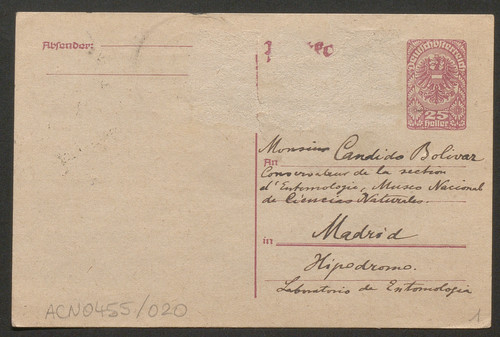 Absender:
Deutschösterreich
25
Heller
Monsieur Candido Bolivar
An
Conservateur de la section
d'Entomologie, Museo Nacional
de Ciencias Naturales.
in Madrid
Hipodromo.
Laboratorio de Entomologia
ACN0455/020
1